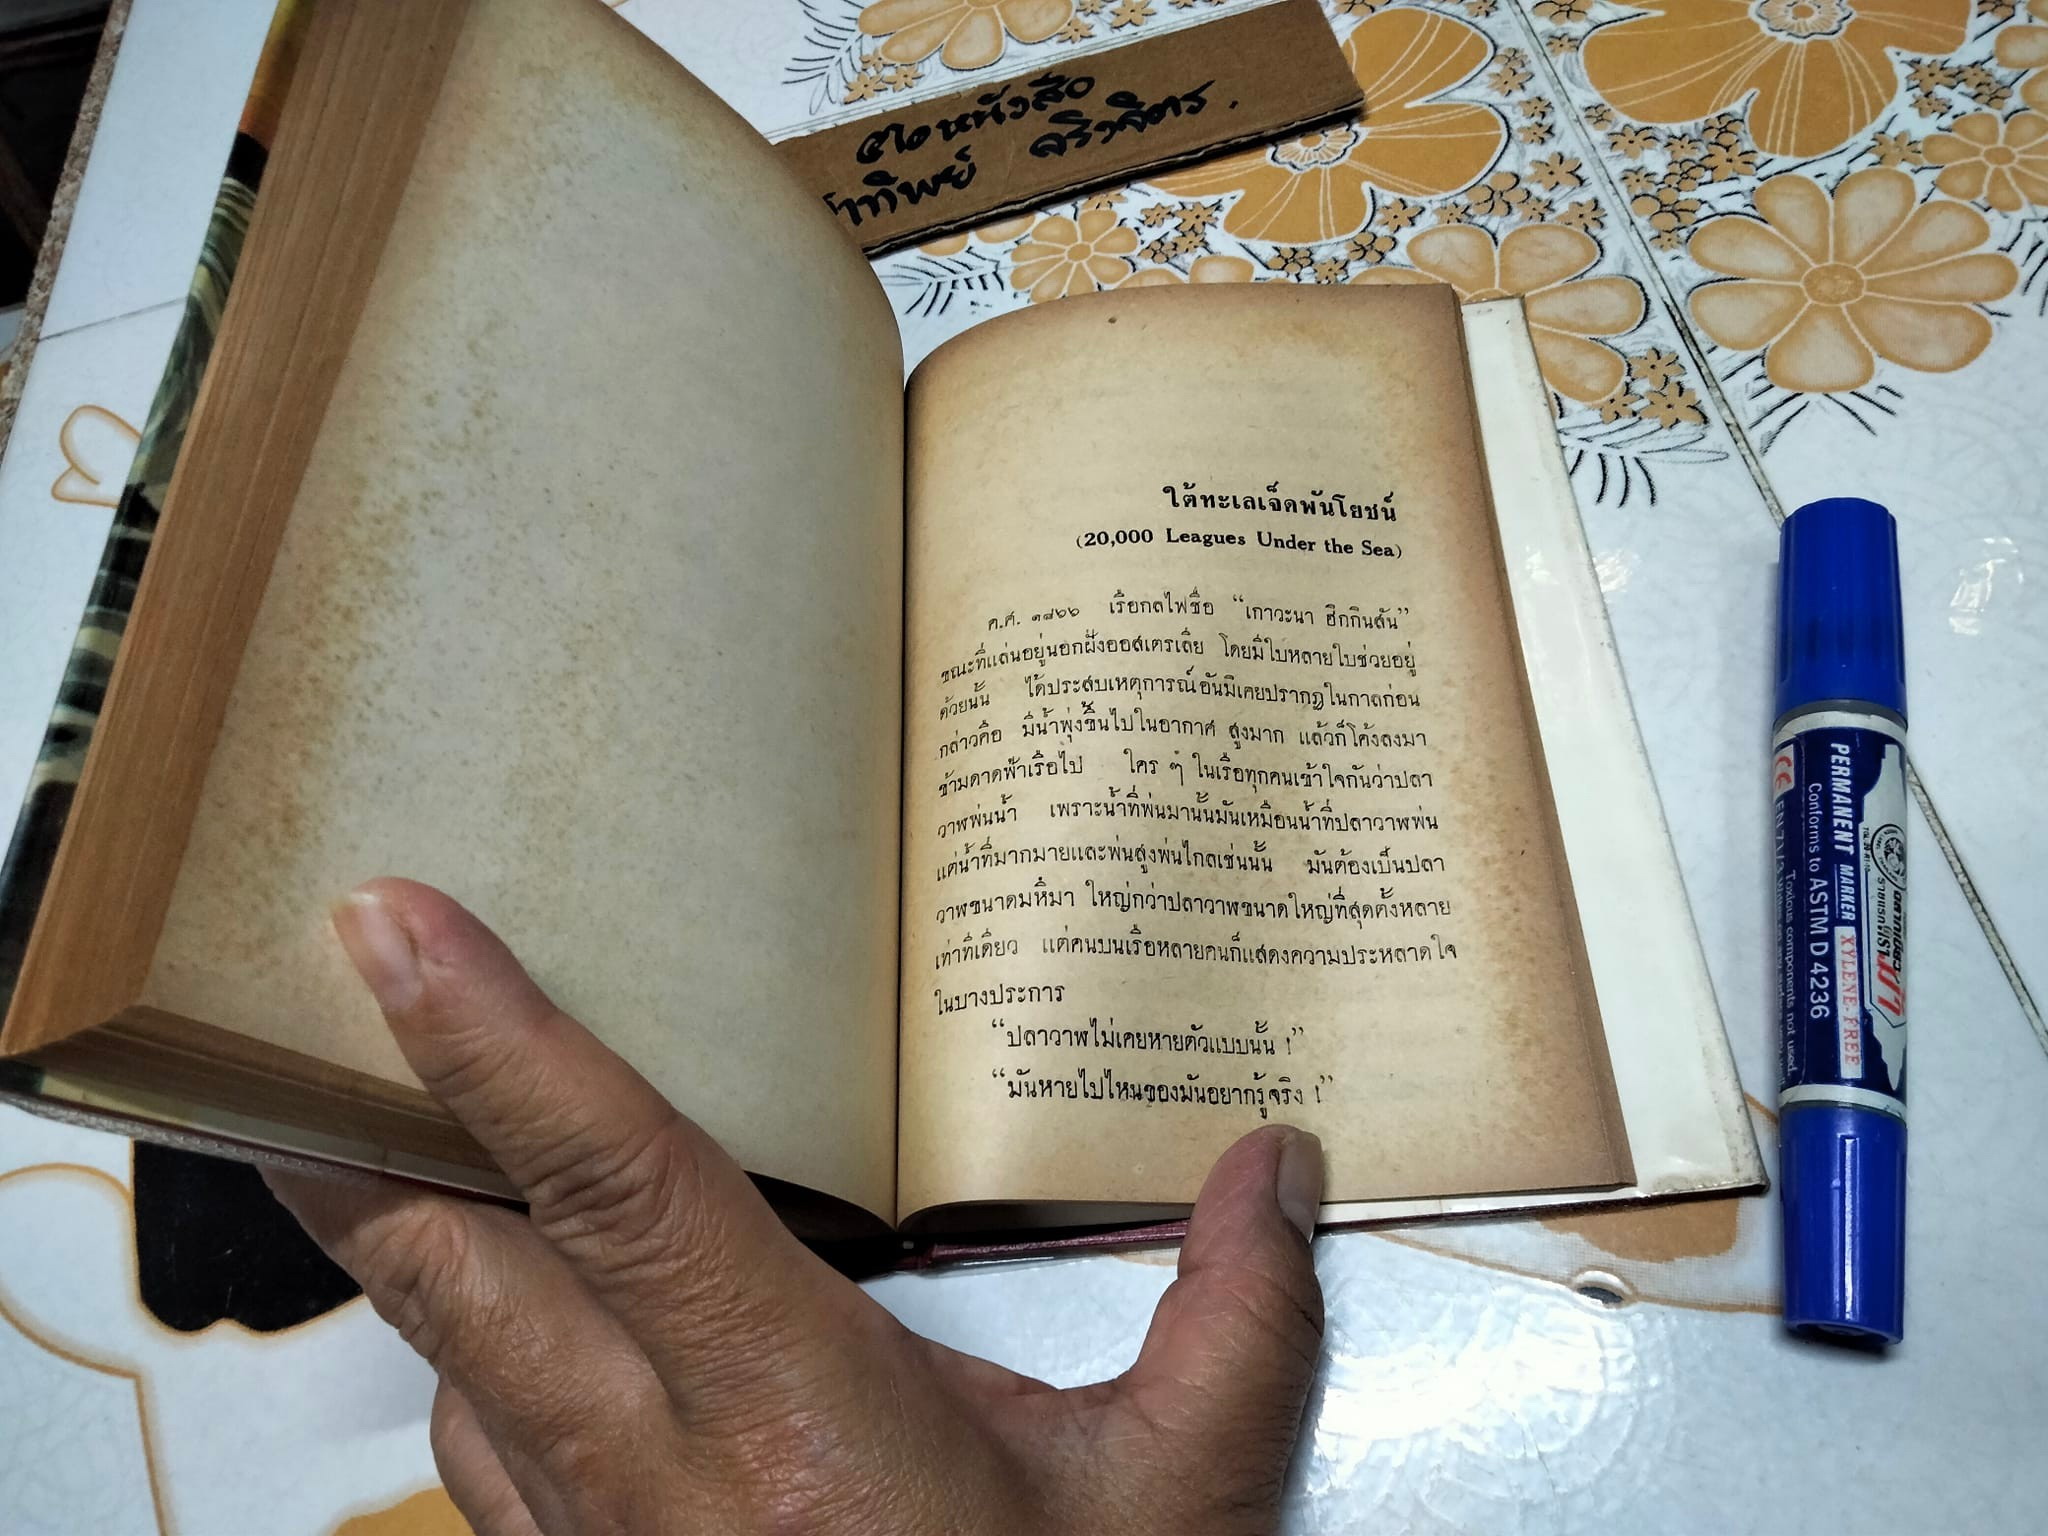 ใต้ทะเลเจ็ดพันโยชน์
(20,000 Leagues Under the Sea)
ค.ศ. ๑๘๖๖ เรือกลไฟชื่อ “เกาวะนา ฮิกกินสัน”
ขณะที่แล่นอยู่นอกฝั่งออสเตรเลีย โดยมีใบหลายใบช่วยอยู่
ด้วยนั้น ได้ประสบเหตุการณ์อันมิเคยปรากฏในกาลก่อน
กล่าวคือ มีน้ำพุ่งขึ้นไปในอากาศ สูงมาก แล้วก็โค้งลงมา
ข้ามดาดฟ้าเรือไป ใคร ๆ ในเรือทุกคนเข้าใจกันว่าปลา
วาฬพ่นน้ำ เพราะน้ำที่พ่นมานั้นมันเหมือนน้ำที่ปลาวาฬพ่น
แต่น้ำที่มากมายและพ่นสูงพ่นไกลเช่นนั้น มันต้องเป็นปลา
วาฬขนาดมหึมา ใหญ่กว่าปลาวาฬขนาดใหญ่ที่สุดตั้งหลาย
เท่าทีเดียว แต่คนบนเรือหลายคนก็แสดงความประหลาดใจ
ในบางประการ
“ปลาวาฬไม่เคยหายตัวแบบนั้น !”
“มันหายไปไหนของมันอยากรู้จริง !”
หนังสือ
าทิพย์
PERMANENT MARKER XYLENE-FREE
Conforms to ASTM D 4236
CE EN 71/3 Toxious components not used.
ตราม้า